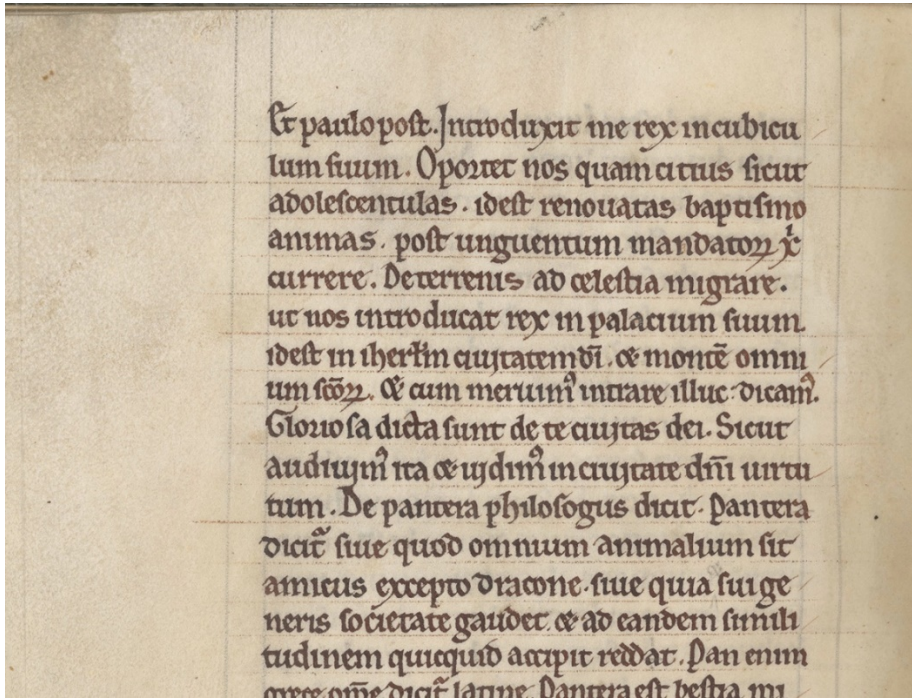 Et paulo post. Introduxit me rex in cubicu
lum suum. Oportet nos quam citius sicut
adolescentulas. idest renouatas baptismo
animas. post unguentum mandatoꝝ xͥ
currere. De terrenis ad celestia migrare.
ut nos introducat rex in palacium suum.
idest in iherƚm ciuitatem dī. et montē omni
um scōꝝ. Et cum meruimꝰ intrare illuc dicamꝰ.
Gloriosa dicta sunt de te ciuitas dei. Sicut
audiuimꝰ ita et uidimꝰ in ciuitate dn̄i uirtu
tum. De pantera philosogus dicit. Pantera
dicit᷑ siue quod omnium animalium sit
amicus excepto dracone. siue quia sui ge
neris societate gaudet. et ad eandem simili
tudinem quicquid accipit reddat. Pan enim
grece om̄e dicit᷑ latine. Pantera est bestia mi